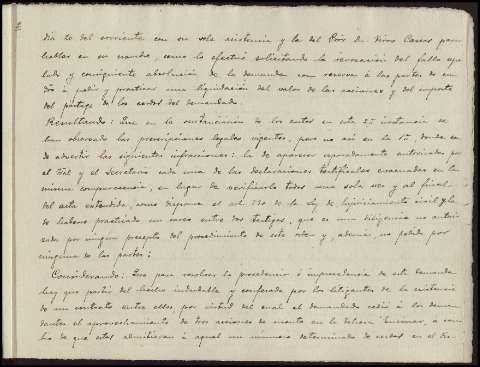 día 20 del corriente con su sola asistencia y la del Pror. de Vivos Casas para
hablar en su nombre, como lo efectuó solicitando la revocación del fallo ape-
lado y consiguiente absolución de la demanda con reserva á las partes de su
dro á pedir y practicar una liquidación del valor de las acciones y del importe
del pastaje de los cerdos del demandado.
Resultando: Que en la sustanciación de los autos en esta 2ª instancia se
han observado las prescripciones legales vigentes, pero no así en la 1ª, donde se
de advertir las siguientes infracciones: la de aparecer separadamente autorizadas por
el Tral y el Secretario cada una de las declaraciones testificales evacuadas en la
misma comparecencia, en lugar de verificarlo todos una sola vez y al final
del acta extendida, como dispone el art. de la Ley de Enjuiciamiento civil y la
de haberse practicado un careo entre dos testigos, que es una diligencia no autori-
zada por ningún precepto del procedimiento de este orden y, además, no pedida por
ninguna de las partes:
Considerando: Que para resolver la procedencia ó improcedencia de esta demanda
hay que partir del hecho indudable y confesado por los litigantes de la existencia
de un contrato entre ellos, por virtud del cual el demandado cedió á los deman-
dantes el aprovechamiento de tres acciones de en la dehesa "Encinar", á cam-
bio de que estos admitieran á aquel un número determinado de cerdos en el